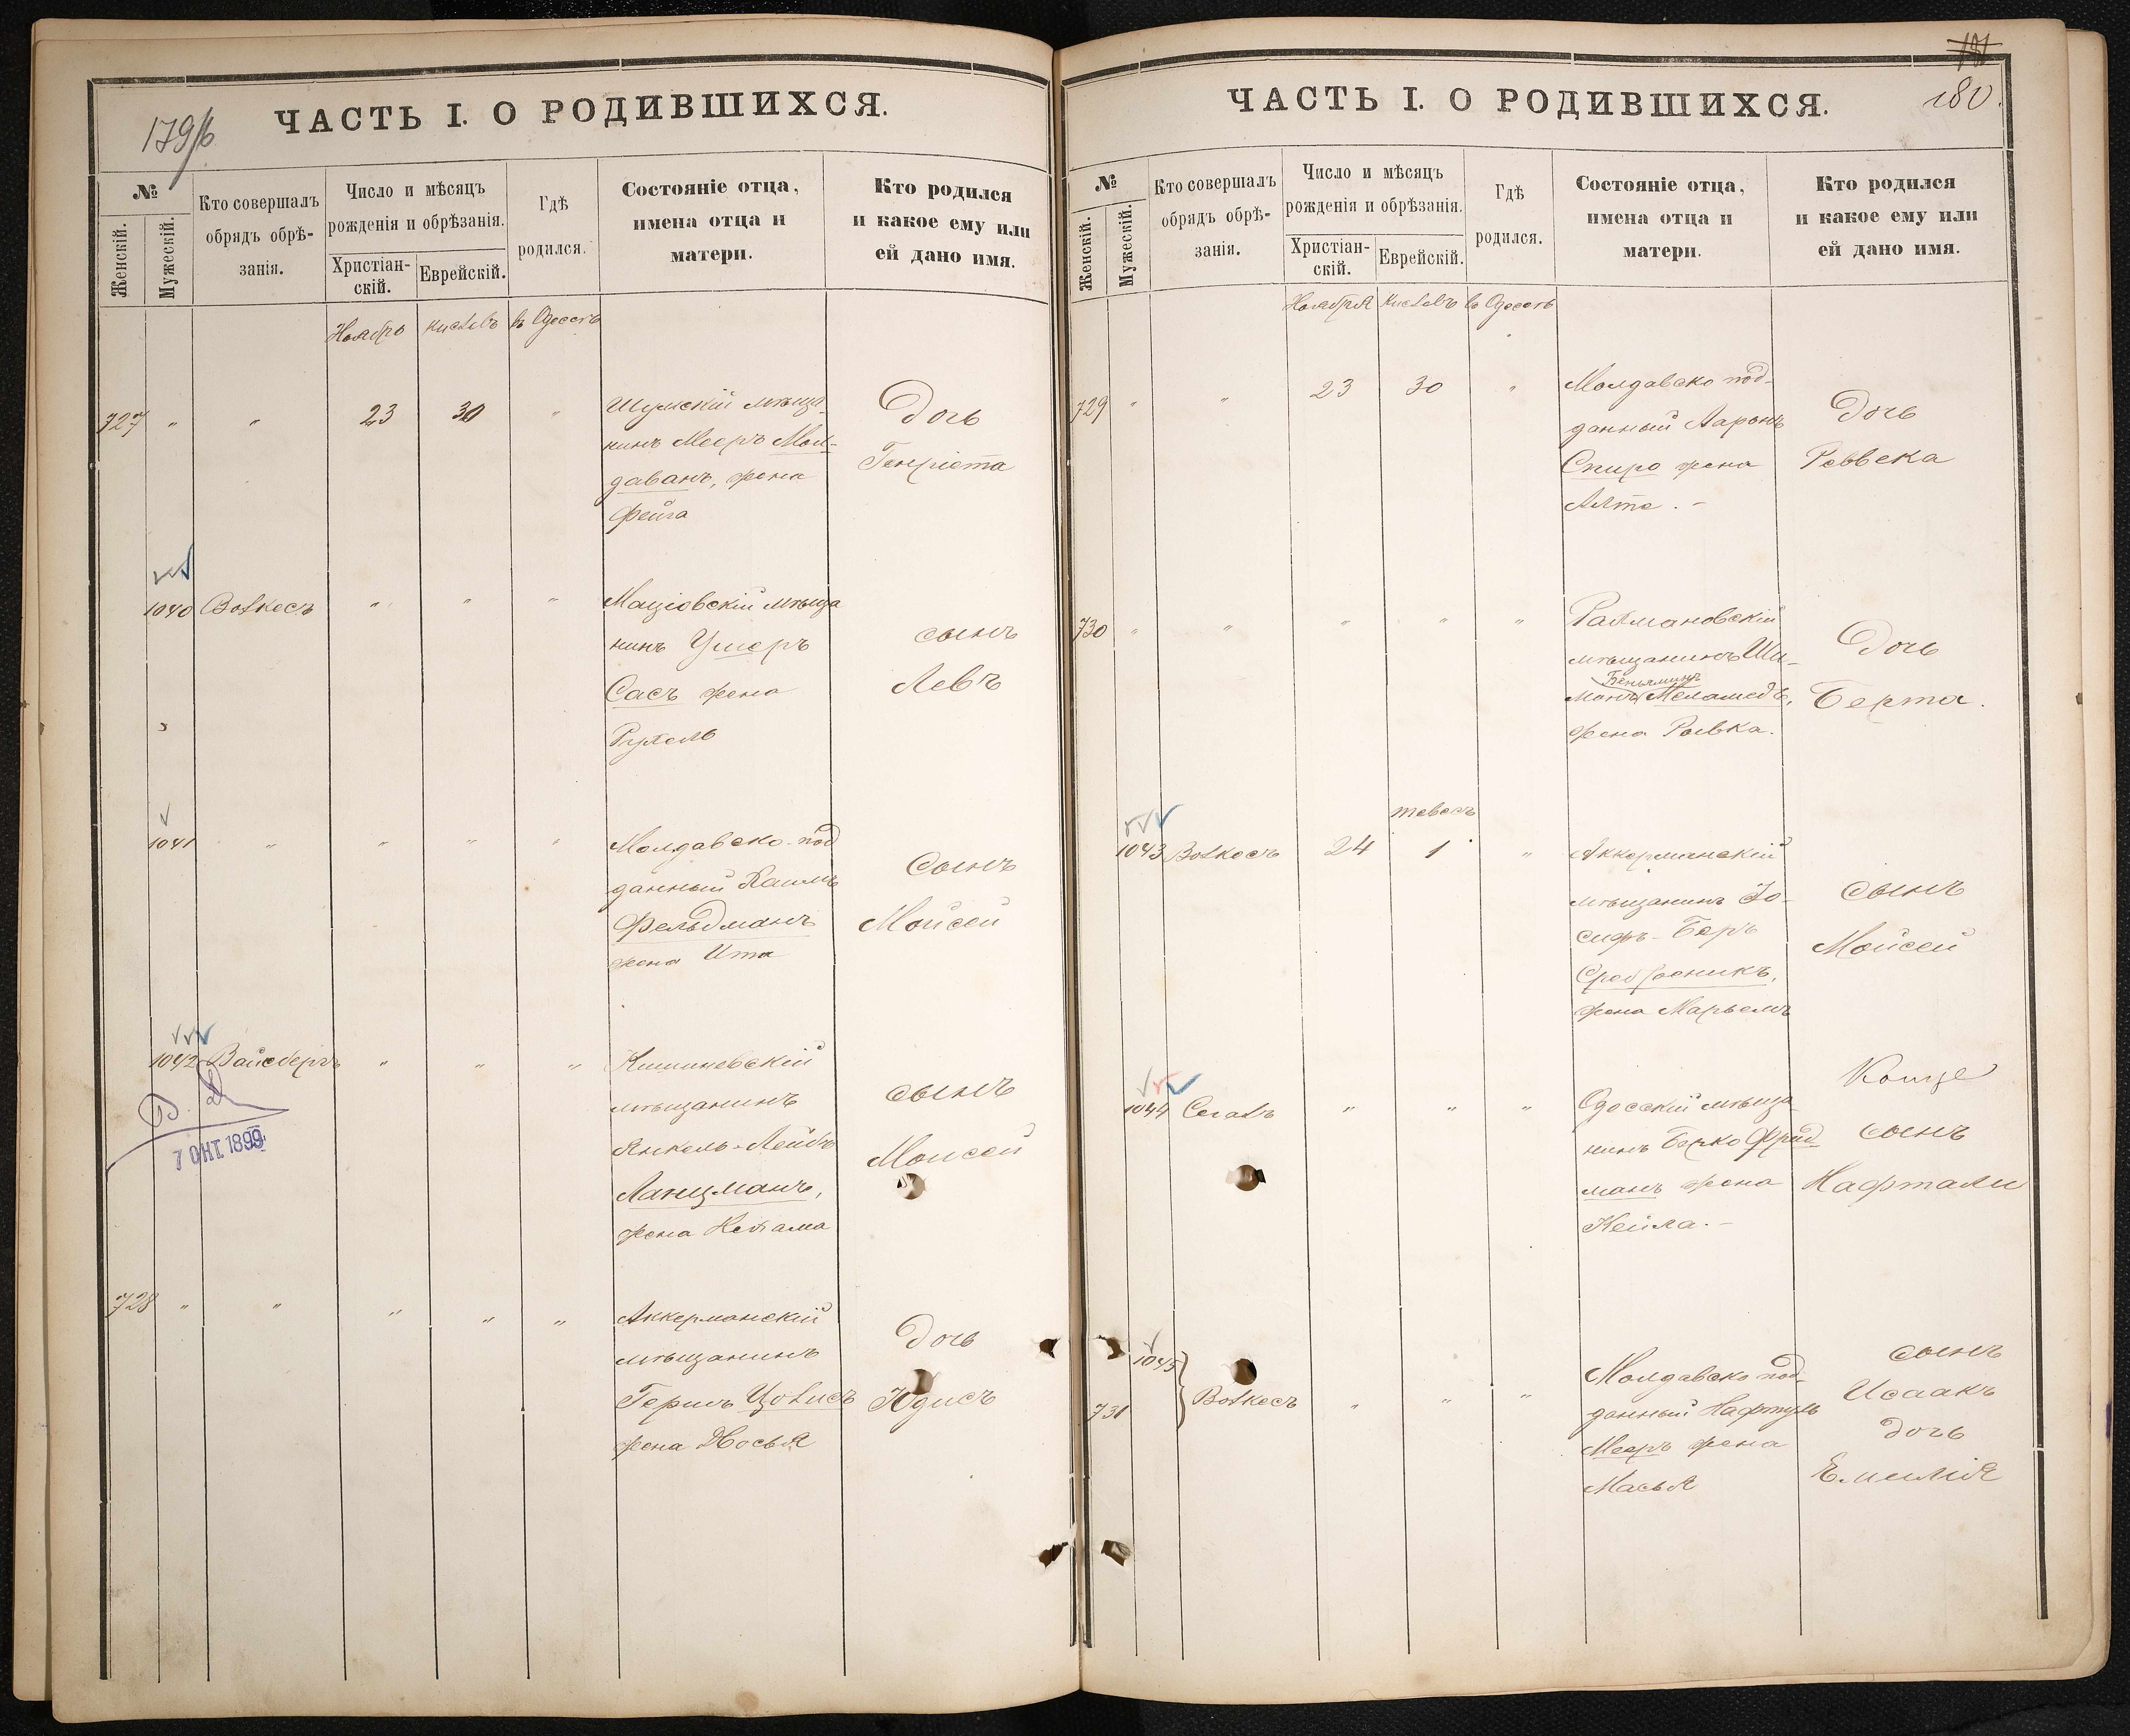 179/б
ЧАСТЬ I. О РОДИВШИХСЯ.
№
Женскій.
Мужескій.
Кто совершалъ
обрядъ обрѣ-
занія.
Число и мѣсяцъ
рожденія и обрѣзанія.
Христіан-
скій.
Еврейскій.
Гдѣ
родился.
Состояніе отца,
имена отца и
матери.
Кто родился
и какое ему или
ей дано имя.
Ноябрь Кислевъ въ Одессѣ
727 " " 23 30 "
Шумскій мѣща-
нинъ Мееръ Мол-
даванъ, жена
Фейга
Дочь
Генріета
1040 Волкесъ " " "
Маціовскій мѣща
нинъ Ушеръ
Сасъ жена
Рухель
сынъ
Левъ
1041 " " " "
Молдавско-под
данный Хаимъ
Фельдманъ
жена Ита
Сынъ
Мойсей
1042 Вайсбергъ " " "
Кишиневскій
мѣщанинъ
Янкель-Лейбъ
Ланцманъ,
жена Нехама
сынъ
Моисей
7 ОКТ. 1899
728 " " " " "
Аккерманскій
мѣщанинъ
Гершъ Цолисъ
жена Двосья
Дочь
Юдисъ
191
180.
ЧАСТЬ I. О РОДИВШИХСЯ.
№
Женскій.
Мужескій.
Кто совершалъ
обрядъ обрѣ-
занія.
Число и мѣсяцъ
рожденія и обрѣзанія.
Христіан-
скій.
Еврейскій.
Гдѣ
родился.
Состояніе отца,
имена отца и
матери.
Кто родился
и какое ему или
ей дано имя.
Ноября Кислевъ въ Одессѣ
729 " " 23 30 "
Молдавско под-
данный Ааронъ
Спиро жена
Алта. -
Дочь
Реввека
730 " " " " "
мѣщанинъ Ши-
Беньяминъ
монъ Меламедъ,
жена Ривка.
Дочь
Берта.
тевесъ
1043 Волкесъ 24 1 "
Аккерманскій
мѣщанинъ Іо-
сифъ-Беръ
Сребреникъ,
жена Марьемъ
сынъ
Мойсей
1044 Сегалъ " " "
Одесскій мѣща
нинъ Берко Фрид-
манъ жена
Нейла. -
сынъ
Нафтали
1045
731 Волкесъ " " "
Молдавско под-
данный Нафтулъ
Мееръ жена
Масья
сынъ
Исаакъ
дочь
Емилія